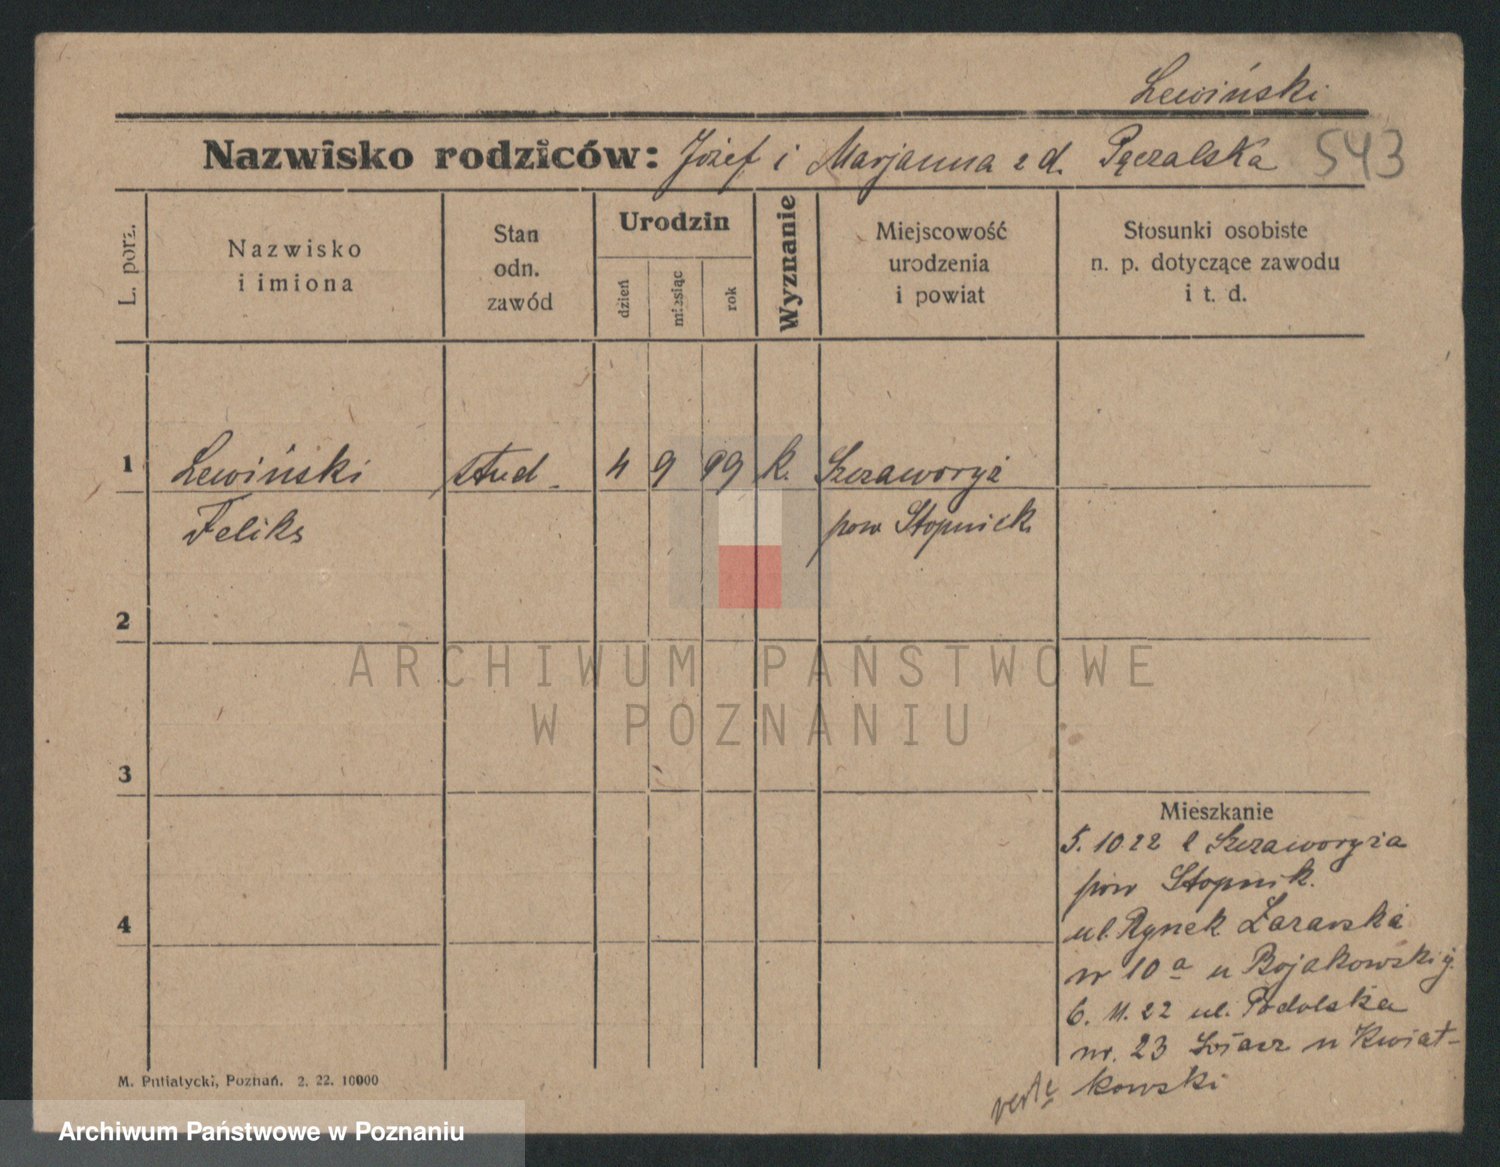 Lewiński
Nazwisko rodziców: Józef i Marjanna z d. Pęczalska 543
L. porz.
Nazwisko
i imiona
Stan
odn.
zawód
Urodzin
dzień
miesiąc
rok
Wyznanie
Miejscowość
urodzenia
i powiat
Stosunki osobiste
n. p. dotyczące zawodu
i t. d.
1 Lewiński stud. 4 9 99 k. Szczaworyż
Feliks pow Stopnick
2
ARCHIWUM PAŃSTWOWE
W POZNANIU
3
Mieszkanie
5. 10 22 z Szczaworyża
pow Stopnik.
4
ul. Rynek Łazarski
nr 10a u Bojakowskiej
6. 11. 22 ul. Podolska
nr. 23 u Kwiat-
kowski
verte
M. Putiatycki, Poznań. 2. 22. 10000
Archiwum Państwowe w Poznaniu